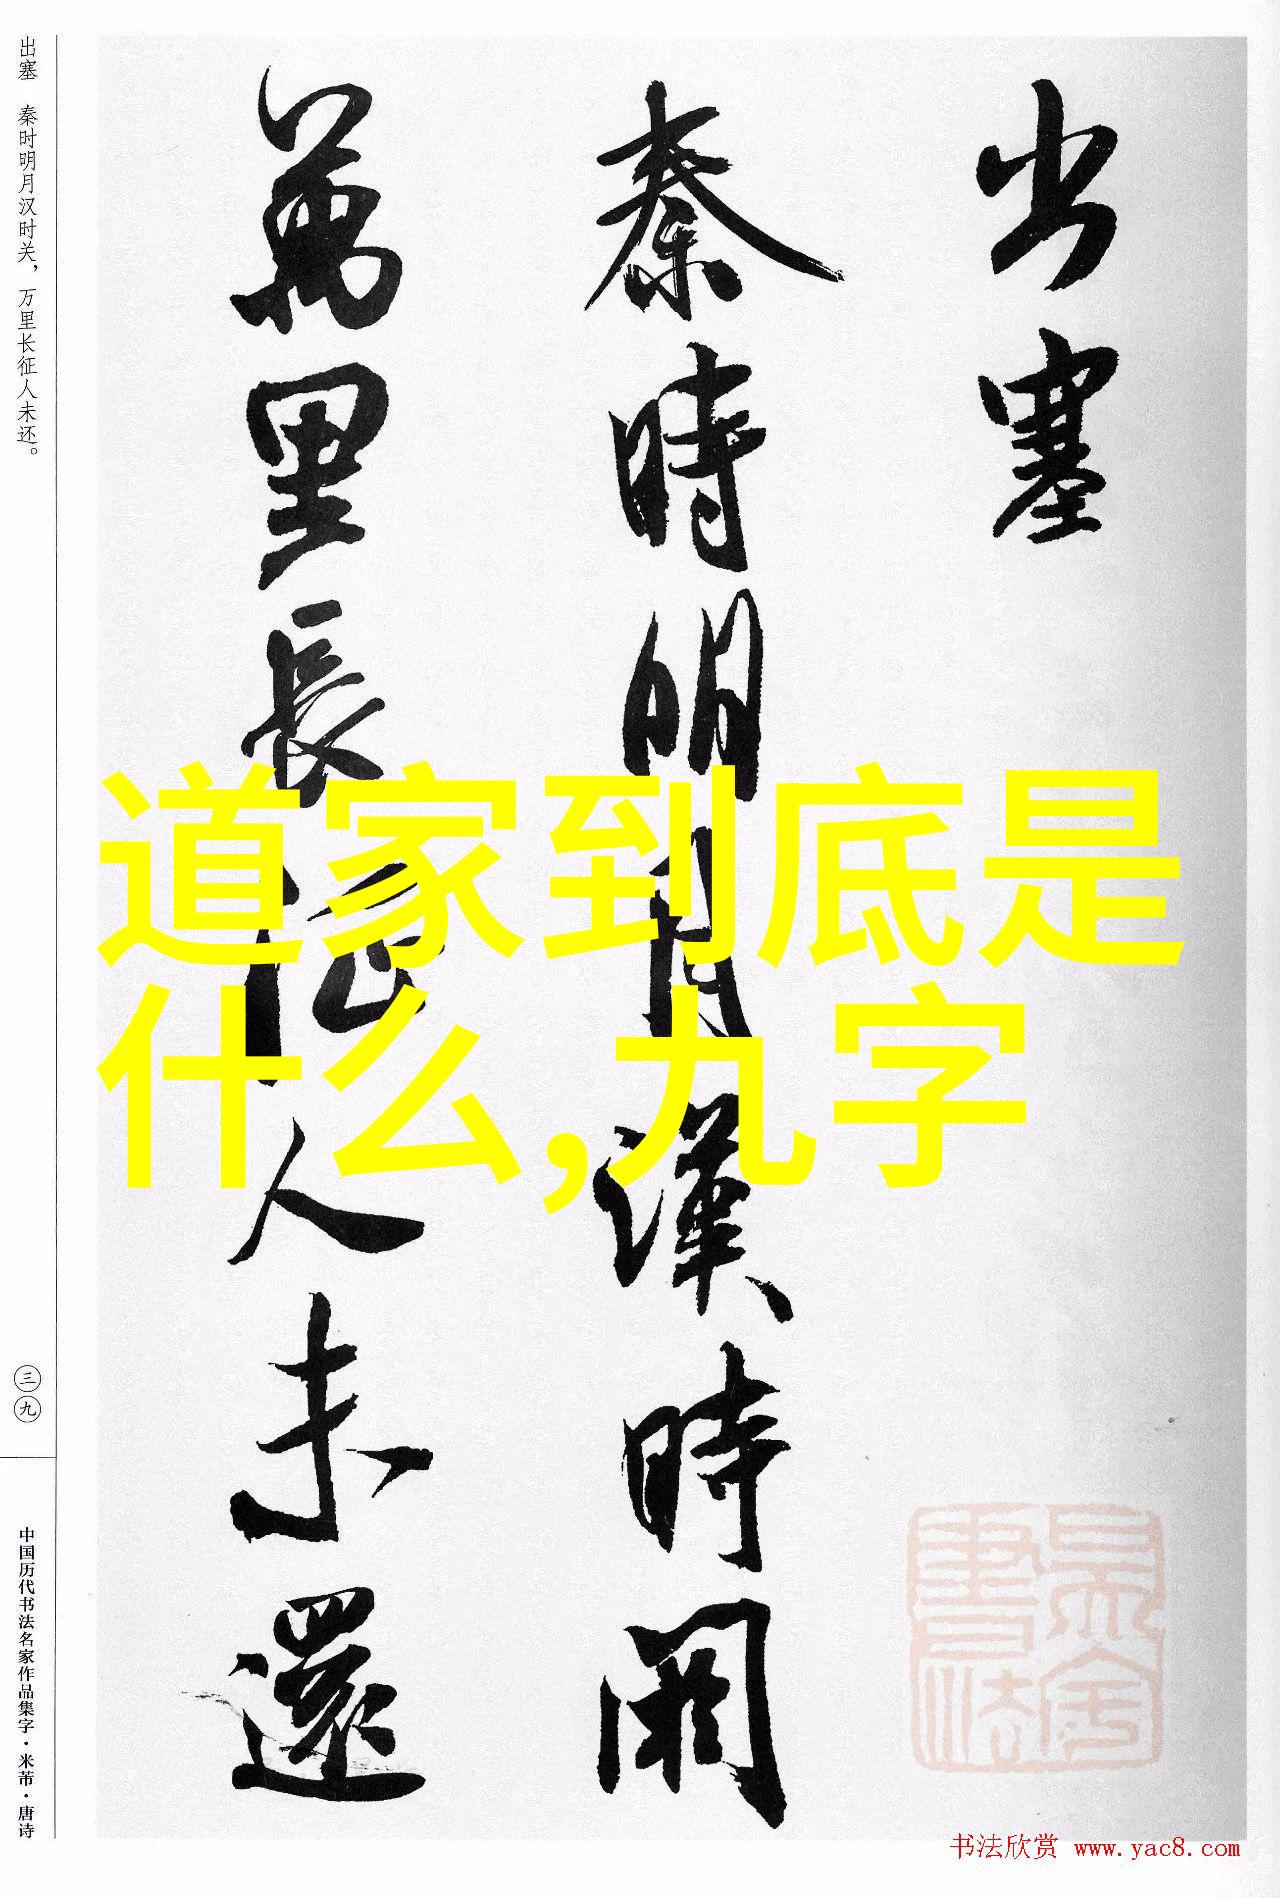 道家到底是
什么,九字
出塞
秦時明月漢時関
萬里長征人未還
出塞 秦时明月汉时关，万里长征人未还。
三九
中国历代书法名家作品集字·米芾·唐诗
书法欣赏 www.yac8.com